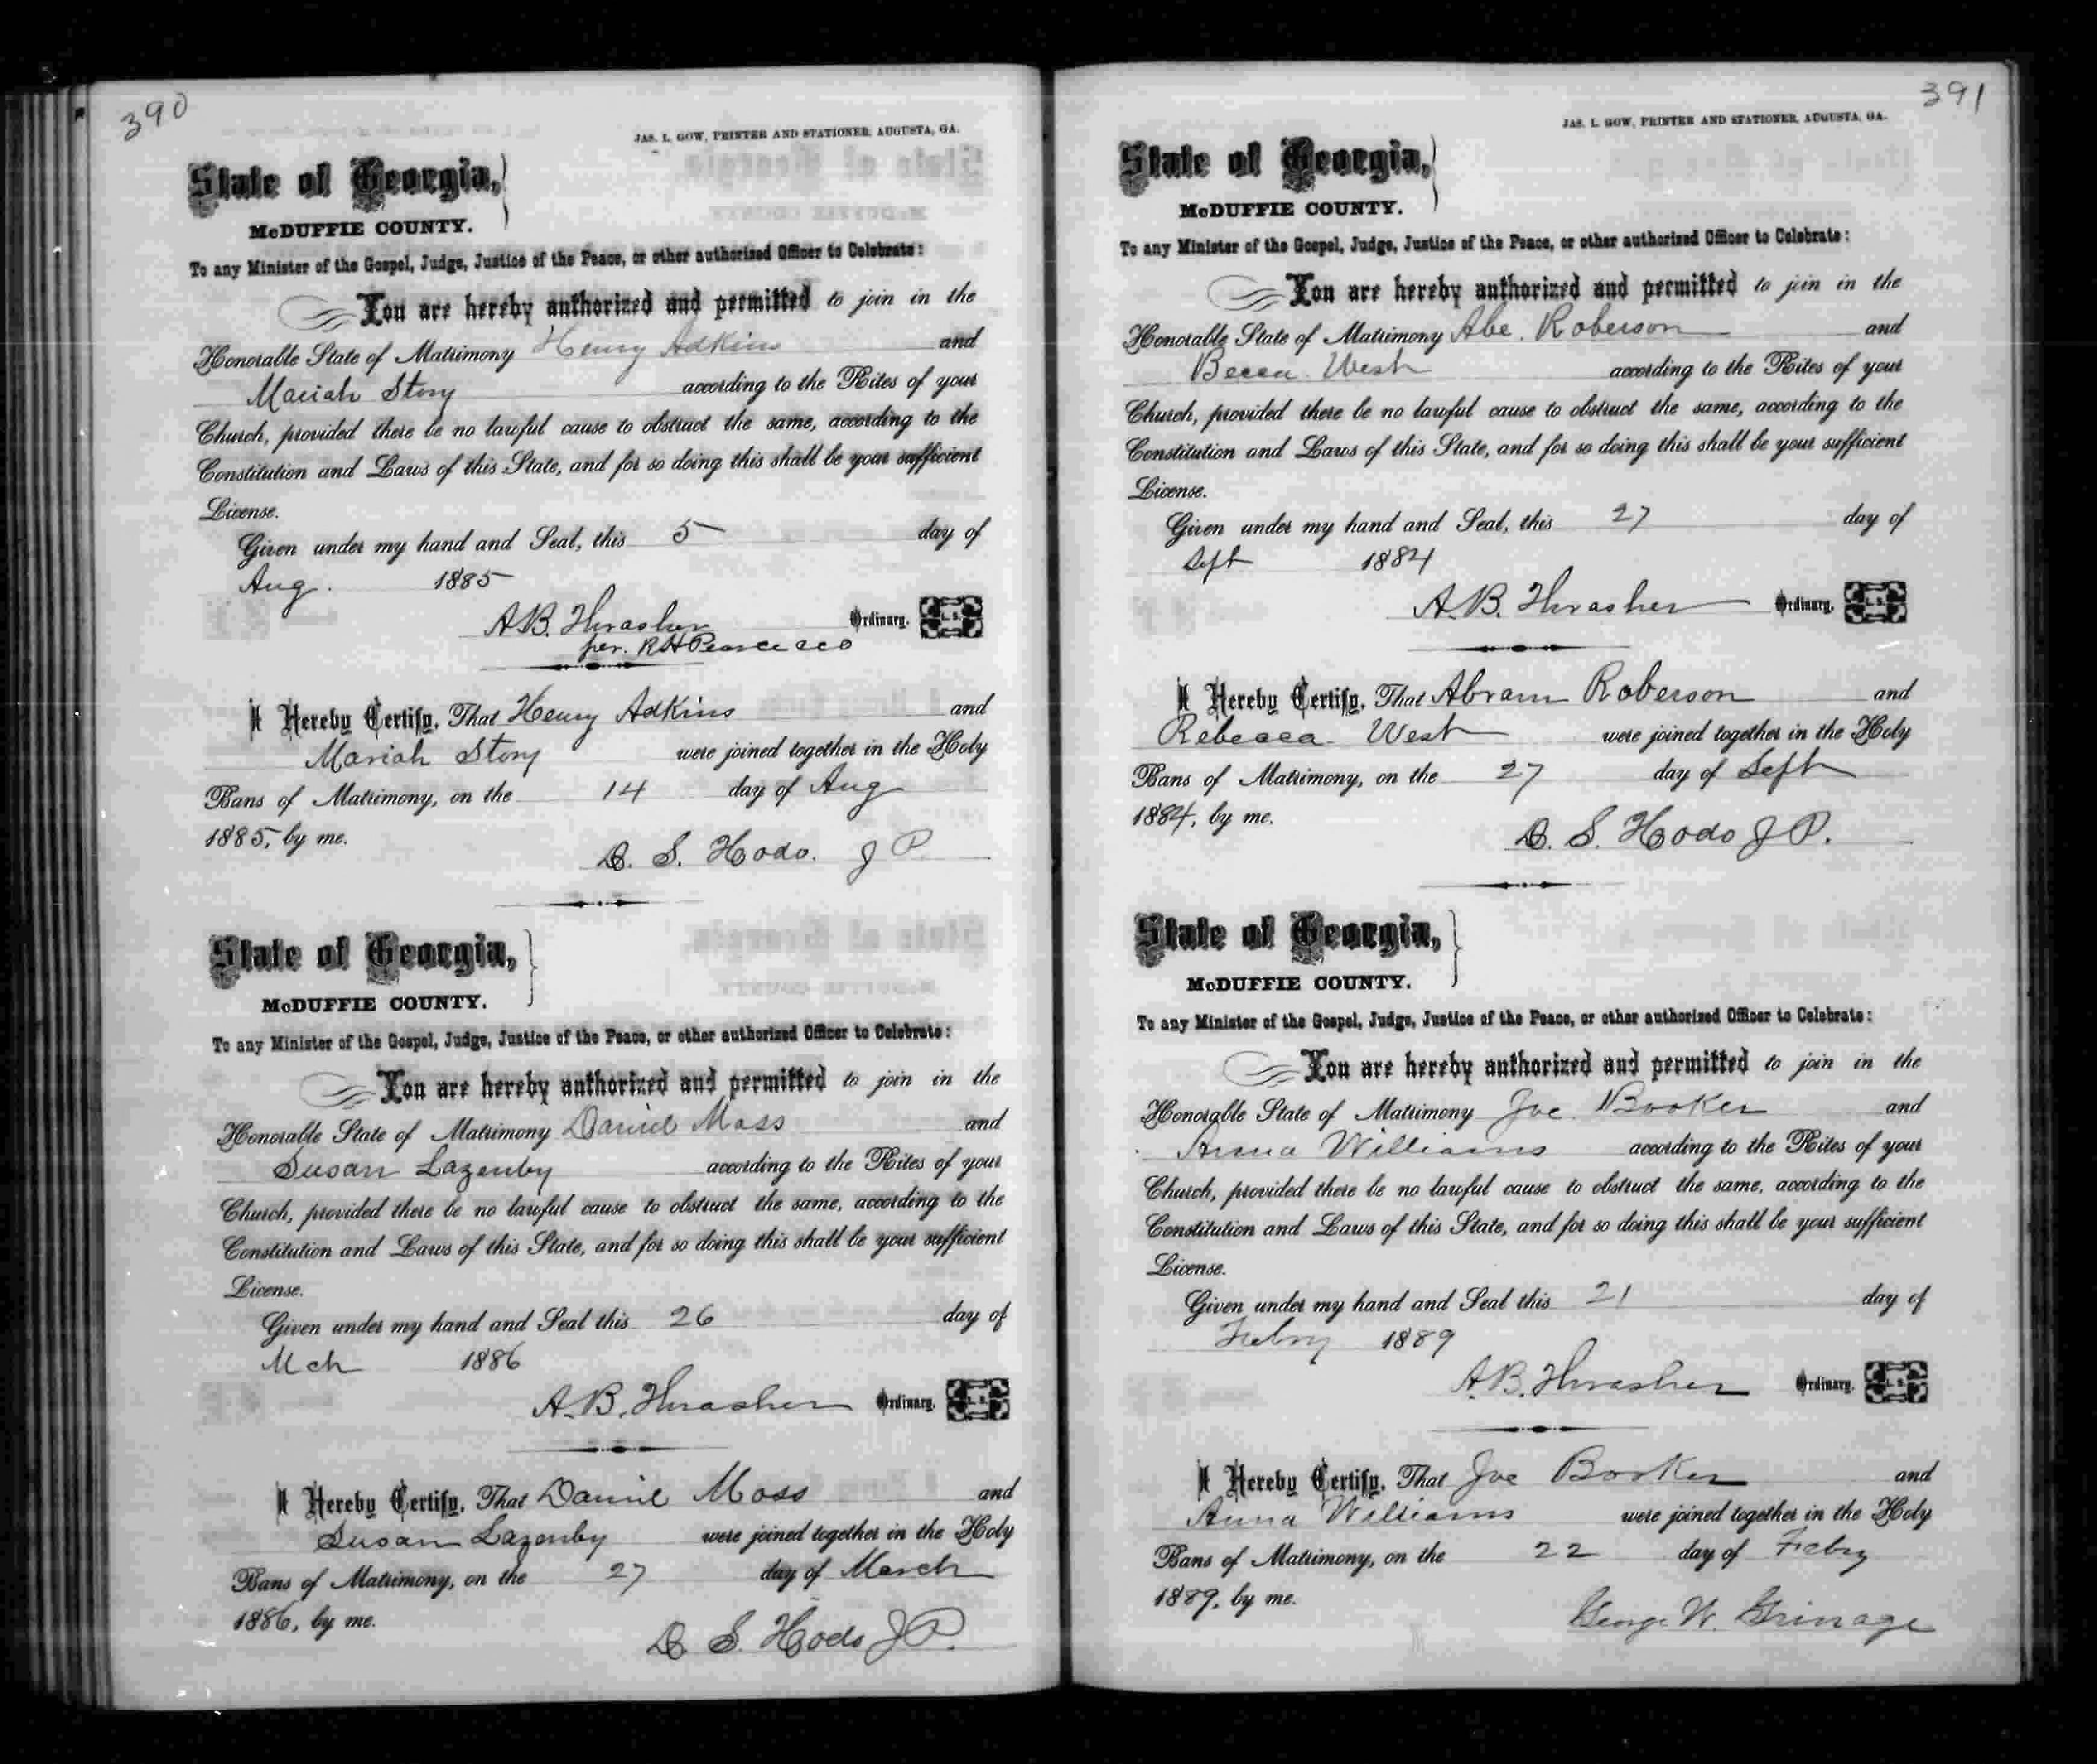 390
JAS. L. GOW, PRINTER AND STATIONER, AUGUSTA, GA.
State of Georgia,
McDUFFIE COUNTY.
To any Minister of the Gospel, Judge, Justice of the Peace, or other authorized Officer to Celebrate:
You are hereby authorized and permitted to join in the
Honorable State of Matrimony Henry Adkins and
Mariah Story according to the Rites of your
Church, provided there be no lawful cause to obstruct the same, according to the
Constitution and Laws of this State, and for so doing this shall be your sufficient
License.
Given under my hand and Seal, this 5 day of
Aug. 1885
A.B. Thrasher Ordinary. L. S.
per. R H Pearce
I Hereby Certify, That Henry Adkins and
Mariah Story were joined together in the Holy
Bans of Matrimony, on the 14 day of Aug
1885, by me.
D. S. Hodo. J P.
State of Georgia,
McDUFFIE COUNTY.
To any Minister of the Gospel, Judge, Justice of the Peace, or other authorized Officer to Celebrate:
You are hereby authorized and permitted to join in the
Honorable State of Matrimony Daniel Moss and
Susan Lazenby according to the Rites of your
Church, provided there be no lawful cause to obstruct the same, according to the
Constitution and Laws of this State, and for so doing this shall be your sufficient
License.
Given under my hand and Seal this 26 day of
Mch 1886
A.B. Thrasher Ordinary. L. S.
I Hereby Certify, That Daniel Moss and
Susan Lazenby were joined together in the Holy
Bans of Matrimony, on the 27 day of March
1886, by me.
D. S. Hodo J P.
391
JAS. L. GOW, PRINTER AND STATIONER, AUGUSTA, GA.
State of Georgia,
McDUFFIE COUNTY.
To any Minister of the Gospel, Judge, Justice of the Peace, or other authorized Officer to Celebrate:
You are hereby authorized and permitted to join in the
Honorable State of Matrimony Abe. Roberson and
Becca West according to the Rites of your
Church, provided there be no lawful cause to obstruct the same, according to the
Constitution and Laws of this State, and for so doing this shall be your sufficient
License.
Given under my hand and Seal, this 27 day of
Sept 1884
A.B. Thrasher Ordinary. L. S.
I Hereby Certify, That Abram Roberson and
Rebecca West were joined together in the Holy
Bans of Matrimony, on the 27 day of Sept
1884, by me.
D. S. Hodo J P.
State of Georgia,
McDUFFIE COUNTY.
To any Minister of the Gospel, Judge, Justice of the Peace, or other authorized Officer to Celebrate:
You are hereby authorized and permitted to join in the
Honorable State of Matrimony Joe Booker and
Anna Williams according to the Rites of your
Church, provided there be no lawful cause to obstruct the same, according to the
Constitution and Laws of this State, and for so doing this shall be your sufficient
License.
Given under my hand and Seal this 21 day of
Febry 1889
A.B. Thrasher Ordinary. L. S.
I Hereby Certify, That Joe Booker and
Anna Williams were joined together in the Holy
Bans of Matrimony, on the 22 day of Febry
1889, by me.
George W. Grinage